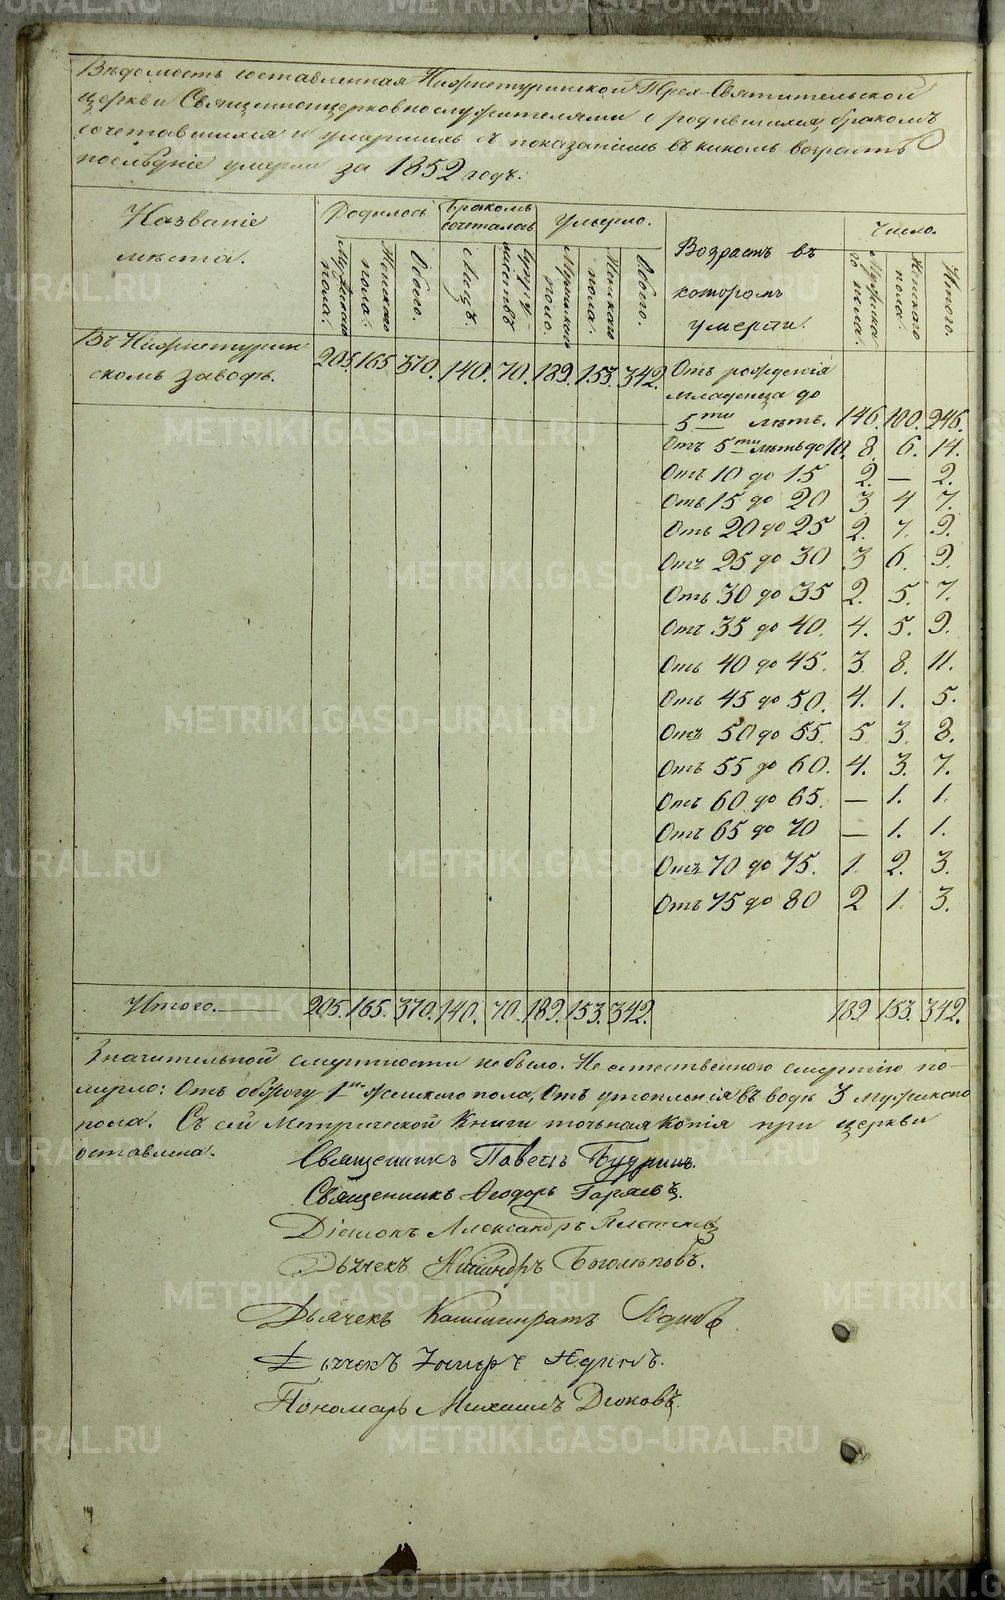 Вѣдомость составленная Нижнетуринской Трех-Святительской
церкви Священноцерковнослужителями о родившихся, бракомъ
сочетавшихся и умершихъ съ показаніемъ въ какомъ возрастѣ
послѣдніе умерли за 1852 годъ.
Названіе мѣста.
Родилось
Мужскаго пола.
Женскаго пола.
Обоего.
Бракомъ сочеталось
Лицъ.
Супружествъ
Умерло.
Мужскаго пола.
Женскаго пола.
Обоего.
Возрастъ въ которомъ умерли.
Число.
Мужскаго пола.
Женскаго пола.
Итого.
Въ Нижнетуринскомъ заводѣ. 205. 165. 370. 140. 70. 189. 153. 342.
Отъ рожденія
младенца до
5ти лѣтъ. 146. 100. 246.
Отъ 5ти лѣтъ до 10. 8. 6. 14.
Отъ 10 до 15 2. — 2.
Отъ 15 до 20 3 4 7.
Отъ 20 до 25 2. 7. 9.
Отъ 25 до 30 3 6. 9.
Отъ 30 до 35 2. 5. 7.
Отъ 35 до 40. 4. 5. 9.
Отъ 40 до 45. 3. 8. 11.
Отъ 45 до 50. 4. 1. 5.
Отъ 50 до 55. 5 3. 8.
Отъ 55 до 60. 4. 3. 7.
Отъ 60 до 65. — 1. 1.
Отъ 65 до 70 — 1. 1.
Отъ 70 до 75. 1. 2. 3.
Отъ 75 до 80 2 1. 3.
Итого. 205. 165. 370. 140. 70. 189. 153. 342. 189 153. 342.
Значительной смертности не было. Неестественною смертію по-
мерло: Отъ обжогу 1н женскаго пола, Отъ утопленія въ водѣ 3 мужскаго
пола. Съ сей Метрической Книги точная Копія при церкви
оставлена.
Священникъ Павелъ Будринъ.
Священникъ Ѳеодоръ Гаряевъ.
Діаконъ Александръ
Дьячекъ Никандръ Боголѣповъ.
Дьячекъ
Дьячекъ
Пономарь Михаилъ Деоновъ.
METRIKI.GASO-URAL.RU